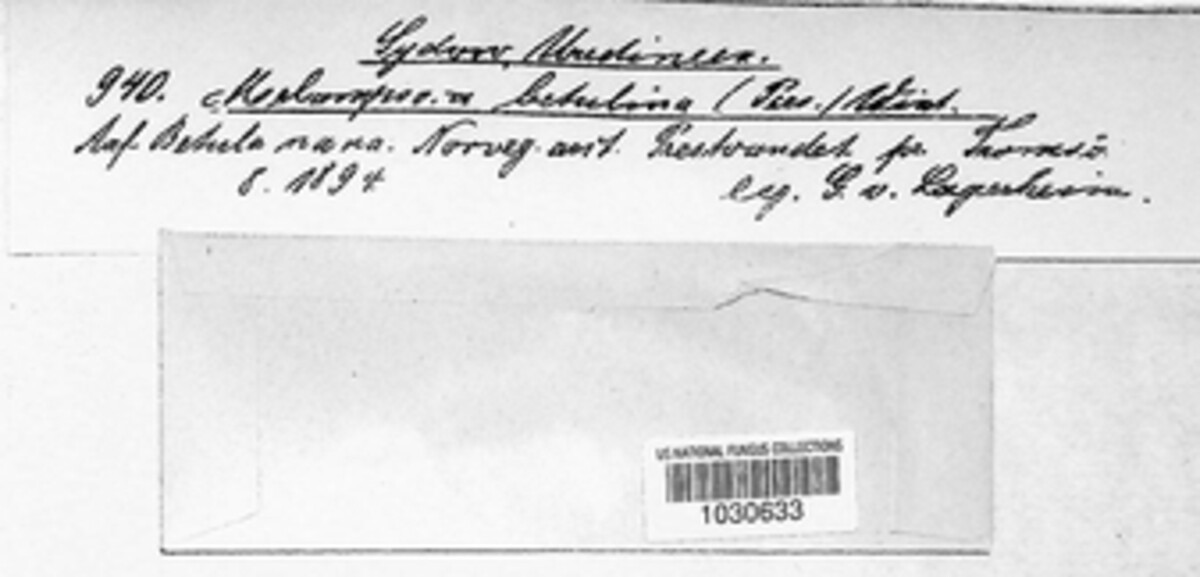 Sydow, Uredineen.
940. Melampsora betulina (Pers.) Wint.
Auf Betula nana. Norveg. arct. Prestvandet pr. Tromsö.
8. 1894
leg. G. v. Lagerheim.
US NATIONAL FUNGUS COLLECTIONS
1030633